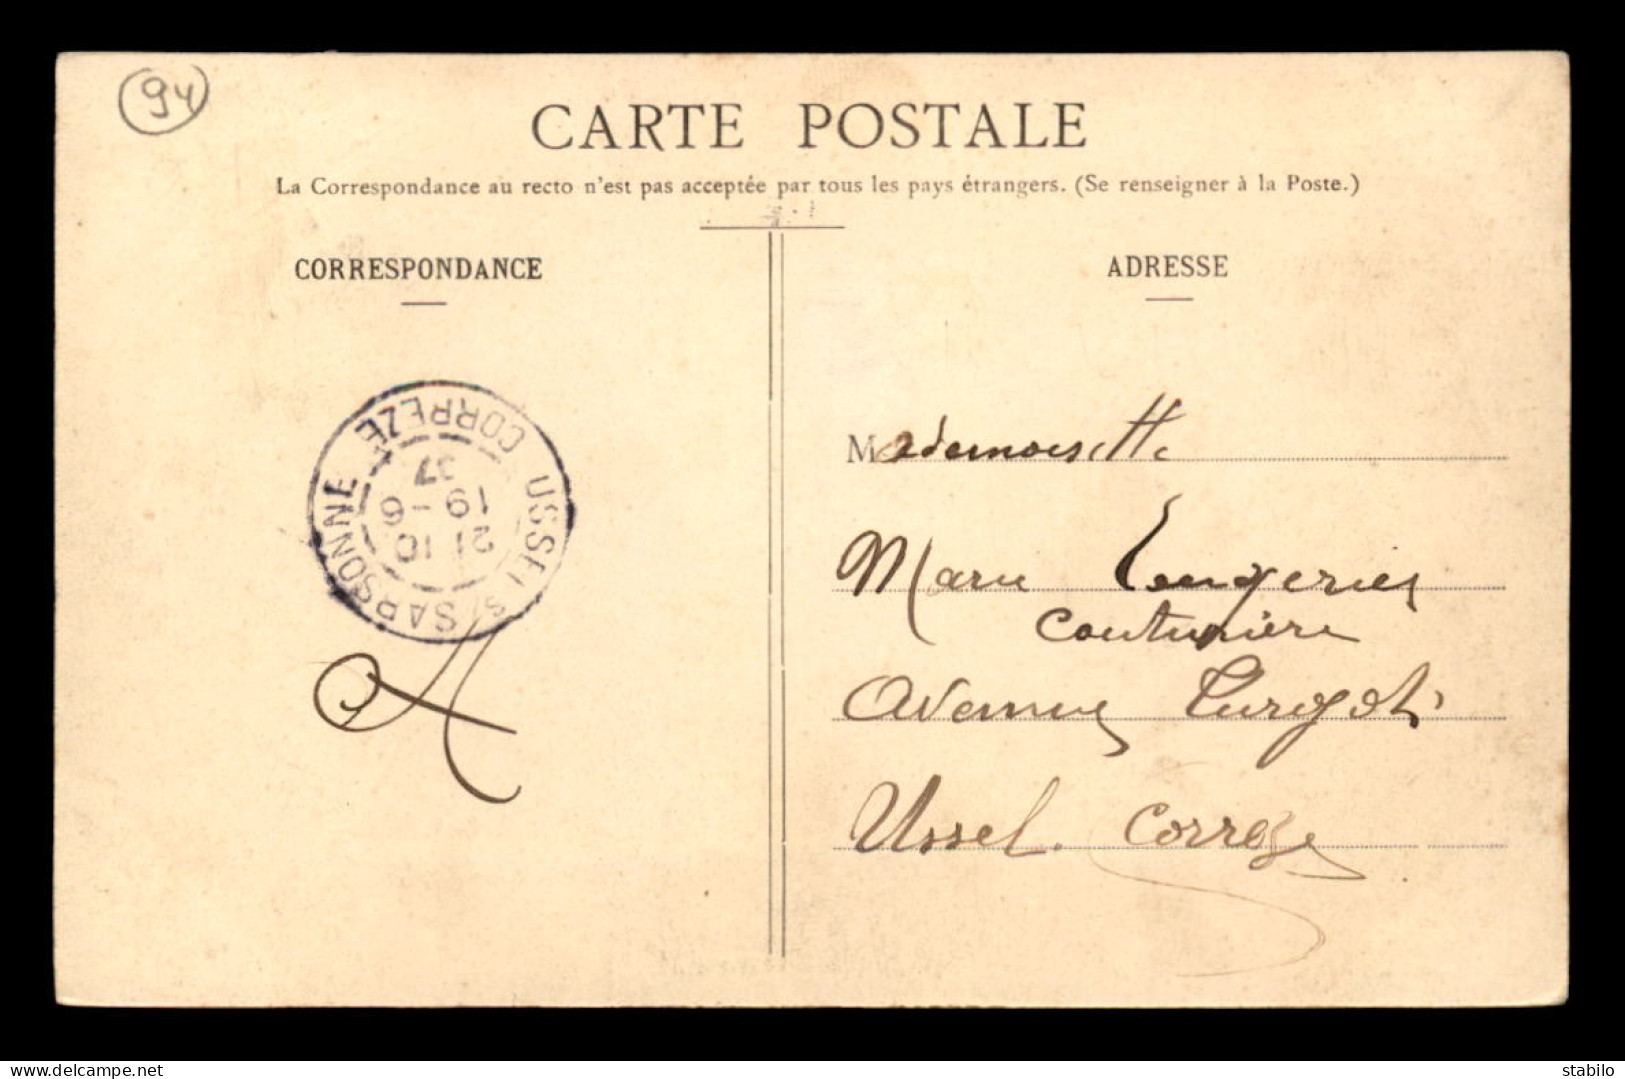 94
CARTE POSTALE
La Correspondance au recto n'est pas acceptée par tous les pays étrangers. (Se renseigner à la Poste.)
CORRESPONDANCE
ADRESSE
USSEL S/ SARSONNE
CORREZE
21 10
19 - 6
37
Mademoiselle
Marie
Couturière
Avenue Turgot
Ussel. Corrèze
stabilo
www.delcampe.net